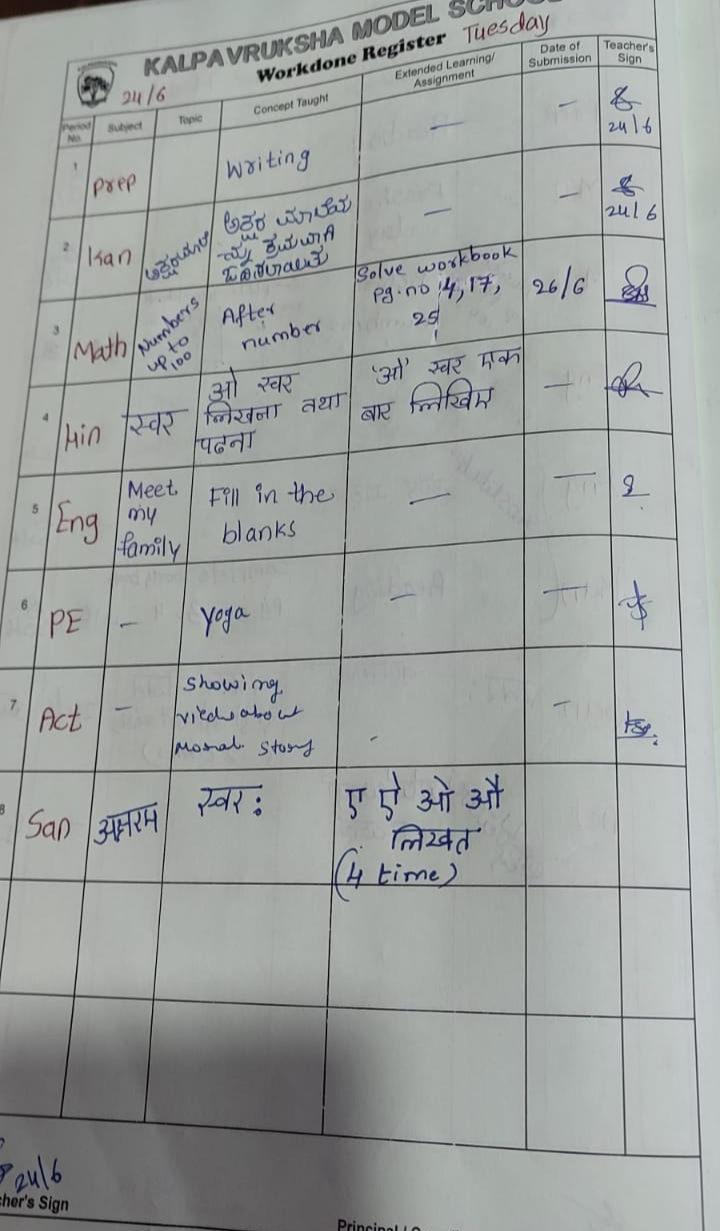 KALPAVRUKSHA MODEL SCHOOL
Workdone Register Tuesday
24/6
Period No. Subject Topic Concept Taught Extended Learning/ Assignment Date of Submission Teacher's Sign
1 Prep Writing — — 24/6
2 Kan — — 24/6
3 Math Numbers up to 100 After number Solve workbook Pg. no 4, 17, 25 26/6
4 Hin स्वर ओ स्वर लिखना तथा पढना 'ओ' स्वर एक बार लिखिए —
5 Eng Meet my family Fill in the blanks — —
6 PE — Yoga — —
7 Act — Showing about Moral Story - —
8 San स्वर: ए ऐ ओ औ लिखत (4 time)
24/6
cher's Sign